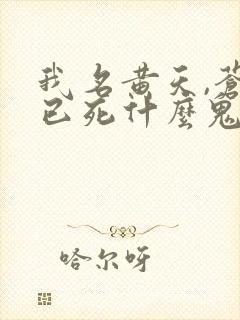 我名黄天,蒼
已死什麼鬼
哈尔呀